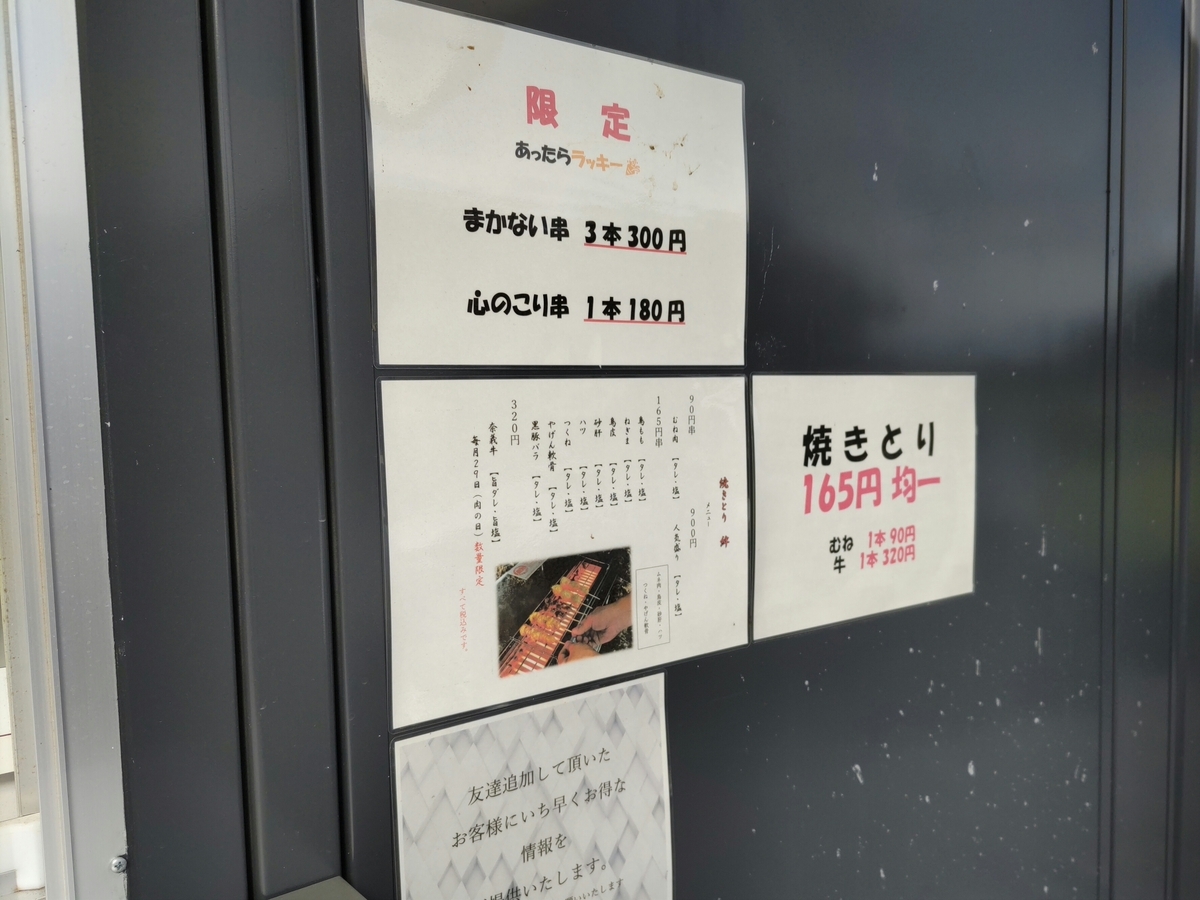 限定
あったらラッキー
まかない串 3本300円
心のこり串 1本180円
焼きとり
メニュー
90円串
むね肉 【タレ・塩】
900円
人気盛り 【タレ・塩】
つくね・やげん軟骨
165円串
鳥もも 【タレ・塩】
ねぎま 【タレ・塩】
鳥皮 【タレ・塩】
砂肝 【タレ・塩】
ハツ 【タレ・塩】
つくね 【タレ・塩】
やげん軟骨 【タレ・塩】
黒豚バラ 【タレ・塩】
320円
奈義牛 【旨ダレ・旨塩】
毎月29日(肉の日)数量限定
すべて税込みです。
焼きとり
165円 均一
むね 1本 90円
牛 1本 320円
友達追加して頂いた
お客様にいち早くお得な
情報を
提供いたします。
いいたします